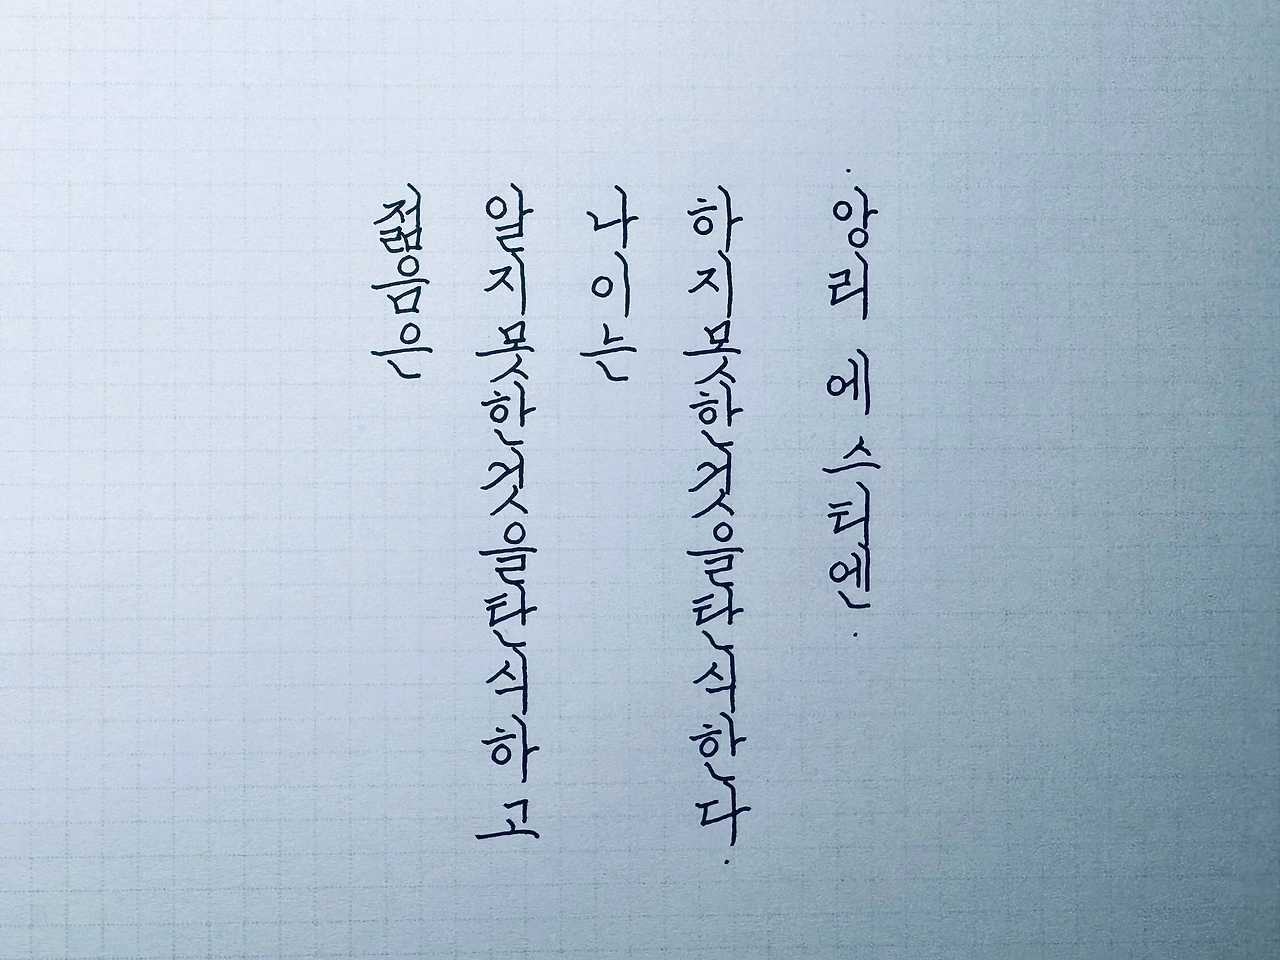 젊음은
알지못한것을탄식하고
나이는
하지못한것을탄식한다.
·앙리 에스티엔·